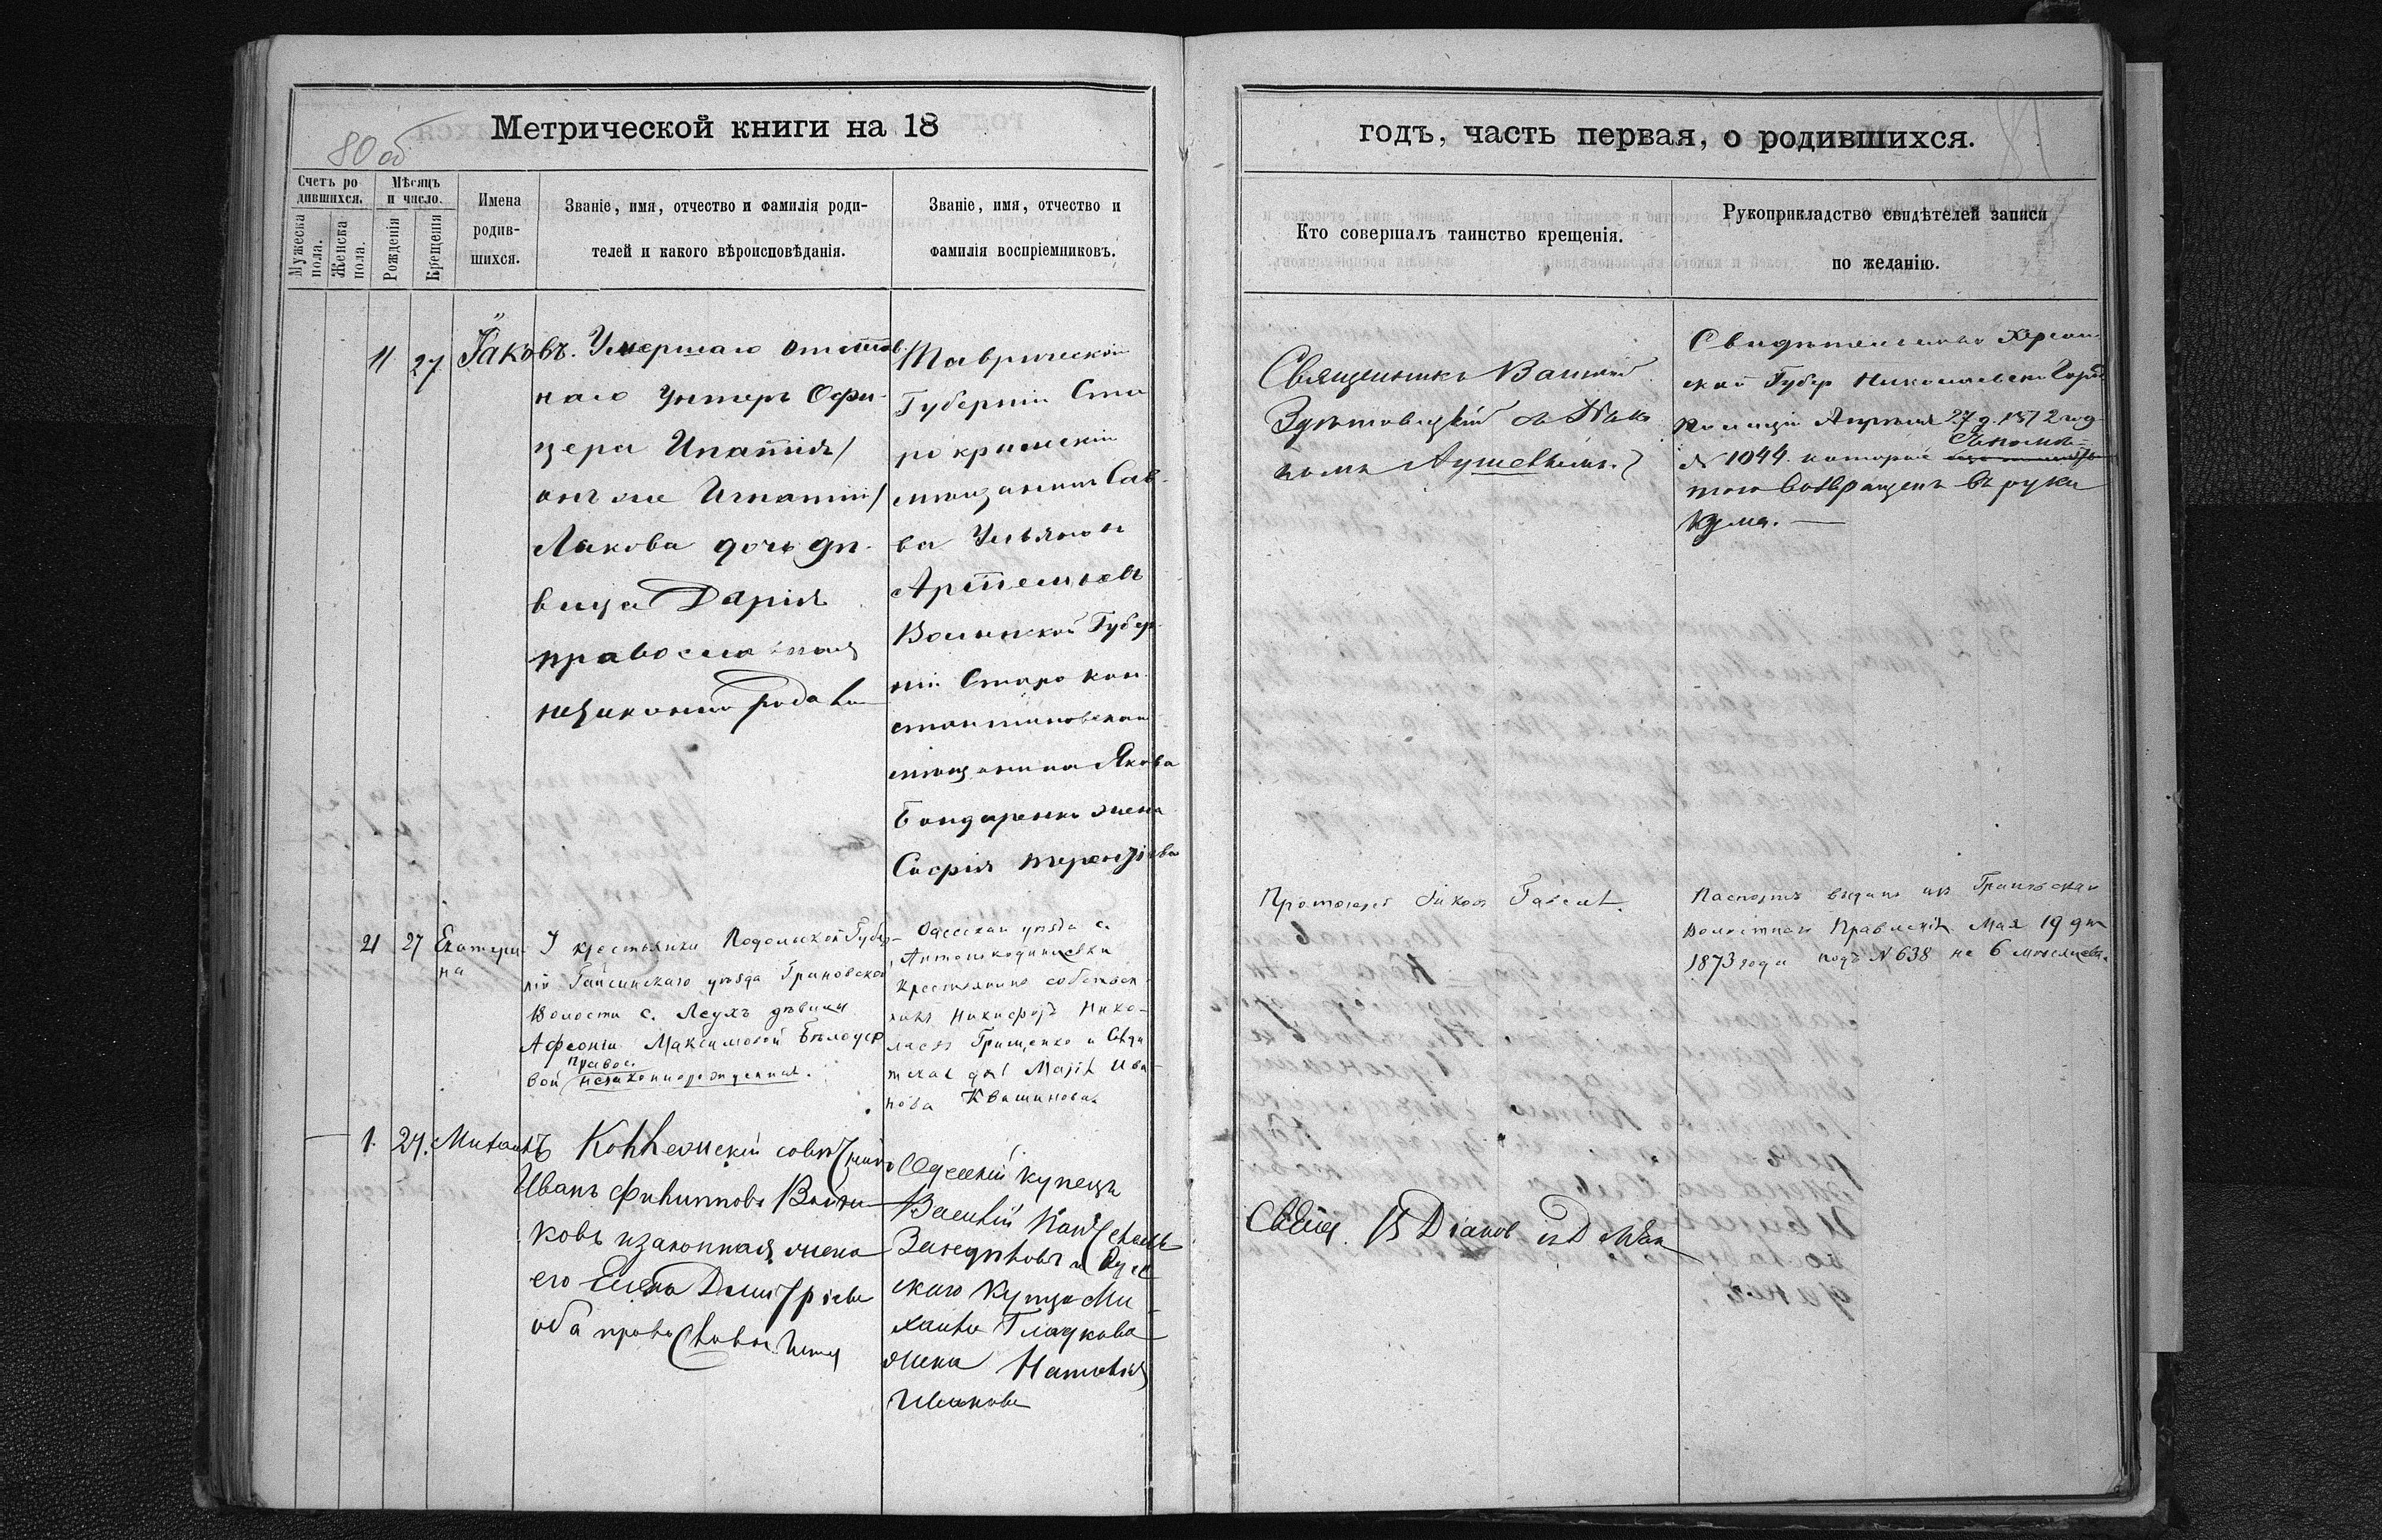 Метрической книги на 18
80 об
годъ, часть первая, о родившихся.
81
Счетъ ро
дившихся.
Мужеска
пола.
Женска
пола.
Мѣсяцъ
и число.
Рожденія
Крещенія
Имена
родив-
шихся.
Званіе, имя, отчество и фамилія роди-
телей и какого вѣроисповѣданія.
Званіе, имя, отчество и
фамилія воспріемниковъ.
Кто совершалъ таинство крещенія.
Рукоприкладство свидѣтелей записи
по желанію.
11
27
Іаковъ.
Умершаго отстав
наго Унтеръ Офи-
цера Ипатія/
онъ же Игнатій/
Лакова дочь дѣ-
вица Дарія
православная
незаконно родила
Таврической
Губерніи Ста
ро крымскій
мещанинъ Сав-
ва
Артемьевъ
Волынской Губер-
ніи Старо кон-
стантиновскаго
мещанина Якова
Бондаренко жена
Софія Терентіева
Священникъ Василій
съ Дьяко
номъ
Свидетельство Херсон-
ской Губер Николаевской Город
Полиціи Апреля 27 д. 1872 год
№ 1044. которое
того возвращенъ въ руки
Кума.
21
27
Екатери-
на
У крестьянки Подольской Губер-
ніи Гайсинскаго уѣзда Грановской
Волости с. Леухъ дѣвицы
Афеоніи Максимовой Бѣлоусо
правос.
вой незаконнорожденная.
Одесскаго уѣзда с.
Антонокодинцевки
крестьянинъ собствен-
никъ Никифоръ Нико-
лаевъ Грищенко и
Марія Ива-
нова Квашинова
Протоіерей Гавріил.
Паспортъ выданъ изъ Грановскаго
Волостнаго Правленія Мая 19 дня
1873 года подъ № 638 на 6 месяцевъ.
1.
27.
Михаилъ
Коллежскій советникъ
Иванъ Филипповъ
ковъ и законная жена
его Елена Димитріева
оба православныя
Одесскій купецъ
Василій
и Одес
скаго Купца Ми-
хаила Гладкова
жена Наталія
Иванова
Свящ. В Діаковъ